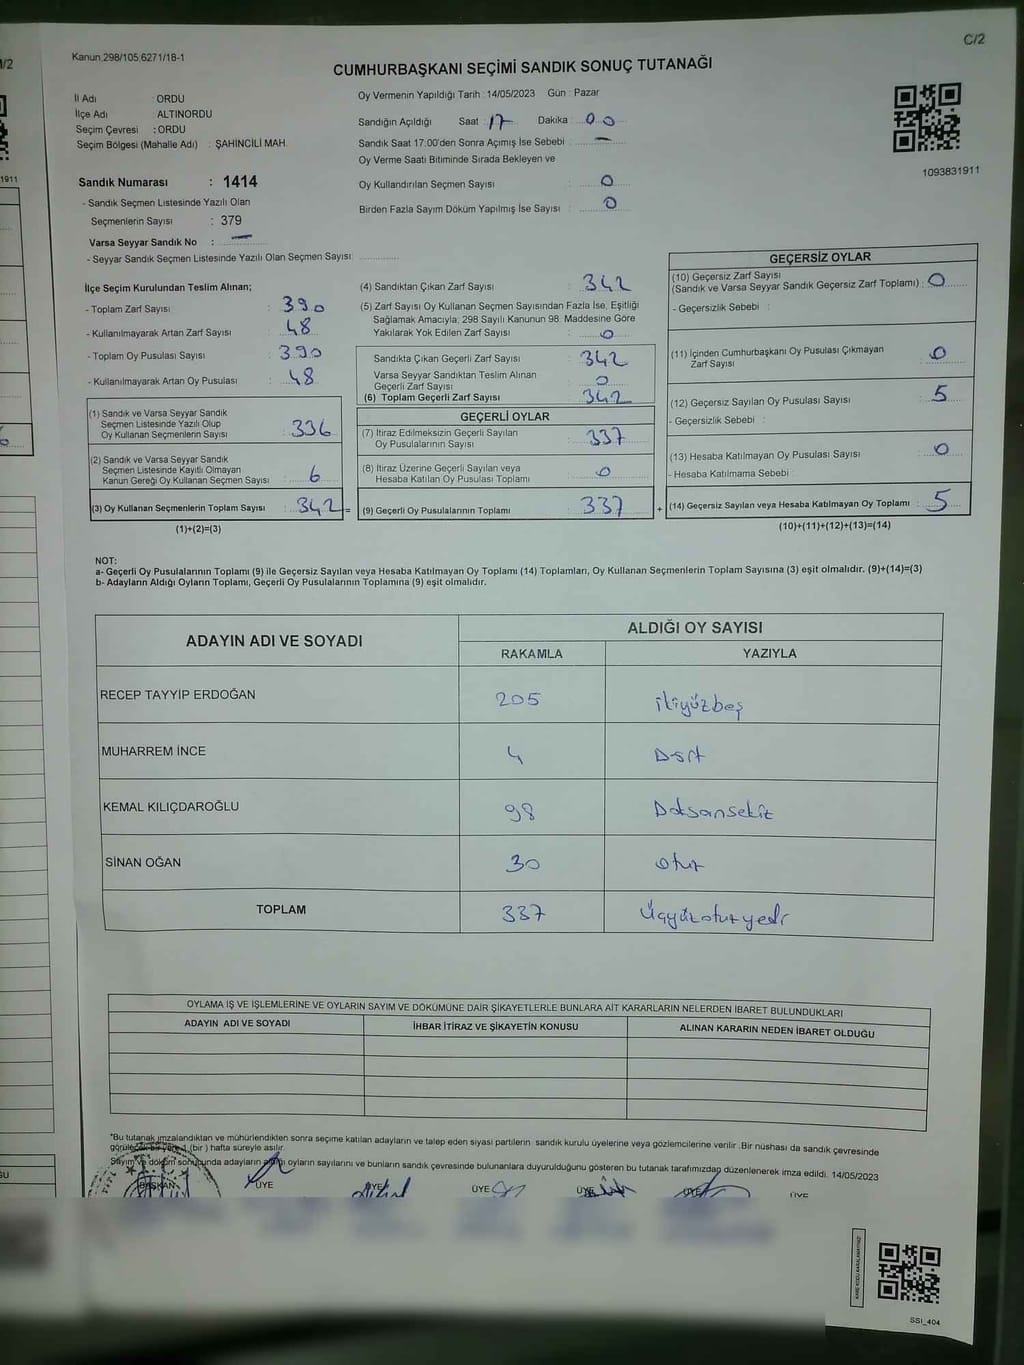 C/2
Kanun 298/105 6271/18-1
CUMHURBAŞKANI SEÇİMİ SANDIK SONUÇ TUTANAĞI
1093831911
İl Adı : ORDU
İlçe Adı ALTINORDU
Seçim Çevresi : ORDU
Seçim Bölgesi (Mahalle Adı) : ŞAHİNCİLİ MAH.
Oy Vermenin Yapıldığı Tarih : 14/05/2023 Gün : Pazar
Sandığın Açıldığı Saat 17 Dakika 00
Sandık Saat 17:00'den Sonra Açımış İse Sebebi : —
Oy Verme Saati Bitiminde Sırada Bekleyen ve
Oy Kullandırılan Seçmen Sayısı : 0
Birden Fazla Sayım Döküm Yapılmış İse Sayısı : 0
Sandık Numarası : 1414
- Sandık Seçmen Listesinde Yazılı Olan
Seçmenlerin Sayısı : 379
Varsa Seyyar Sandık No : —
- Seyyar Sandık Seçmen Listesinde Yazılı Olan Seçmen Sayısı:
İlçe Seçim Kurulundan Teslim Alınan;
- Toplam Zarf Sayısı : 390
- Kullanılmayarak Artan Zarf Sayısı : 48
- Toplam Oy Pusulası Sayısı : 390
- Kullanılmayarak Artan Oy Pusulası : 48
(1) Sandık ve Varsa Seyyar Sandık
Seçmen Listesinde Yazılı Olup
Oy Kullanan Seçmenlerin Sayısı : 336
(2) Sandık ve Varsa Seyyar Sandık
Seçmen Listesinde Kayıtlı Olmayan
Kanun Gereği Oy Kullanan Seçmen Sayısı : 6
(3) Oy Kullanan Seçmenlerin Toplam Sayısı : 342 =
(1)+(2)=(3)
(4) Sandıktan Çıkan Zarf Sayısı : 342
(5) Zarf Sayısı Oy Kullanan Seçmen Sayısından Fazla İse, Eşitliği
Sağlamak Amacıyla; 298 Sayılı Kanunun 98. Maddesine Göre
Yakılarak Yok Edilen Zarf Sayısı : 0
Sandıkta Çıkan Geçerli Zarf Sayısı : 342
Varsa Seyyar Sandıktan Teslim Alınan
Geçerli Zarf Sayısı : 0
(6) Toplam Geçerli Zarf Sayısı : 342
GEÇERLİ OYLAR
(7) İtiraz Edilmeksizin Geçerli Sayılan
Oy Pusulalarının Sayısı : 337
(8) İtiraz Üzerine Geçerli Sayılan veya
Hesaba Katılan Oy Pusulası Toplamı : 0
(9) Geçerli Oy Pusulalarının Toplamı : 337 +
GEÇERSİZ OYLAR
(10) Geçersiz Zarf Sayısı
(Sandık ve Varsa Seyyar Sandık Geçersiz Zarf Toplamı) : 0
- Geçersizlik Sebebi :
(11) İçinden Cumhurbaşkanı Oy Pusulası Çıkmayan
Zarf Sayısı : 0
(12) Geçersiz Sayılan Oy Pusulası Sayısı : 5
- Geçersizlik Sebebi :
(13) Hesaba Katılmayan Oy Pusulası Sayısı : 0
- Hesaba Katılmama Sebebi :
(14) Geçersiz Sayılan veya Hesaba Katılmayan Oy Toplamı : 5
(10)+(11)+(12)+(13)=(14)
NOT:
a- Geçerli Oy Pusulalarının Toplamı (9) ile Geçersiz Sayılan veya Hesaba Katılmayan Oy Toplamı (14) Toplamları, Oy Kullanan Seçmenlerin Toplam Sayısına (3) eşit olmalıdır. (9)+(14)=(3)
b- Adayların Aldığı Oyların Toplamı, Geçerli Oy Pusulalarının Toplamına (9) eşit olmalıdır.
ADAYIN ADI VE SOYADI
ALDIĞI OY SAYISI
RAKAMLA YAZIYLA
RECEP TAYYİP ERDOĞAN 205 ikiyüzbeş
MUHARREM İNCE 4 Dört
KEMAL KILIÇDAROĞLU 98 Doksansekiz
SİNAN OĞAN 30 otuz
TOPLAM 337 Üçyüzotuzyedi
OYLAMA İŞ VE İŞLEMLERİNE VE OYLARIN SAYIM VE DÖKÜMÜNE DAİR ŞİKAYETLERLE BUNLARA AİT KARARLARIN NELERDEN İBARET BULUNDUKLARI
ADAYIN ADI VE SOYADI İHBAR İTİRAZ VE ŞİKAYETİN KONUSU ALINAN KARARIN NEDEN İBARET OLDUĞU
*Bu tutanak imzalandıktan ve mühürlendikten sonra seçime katılan adayların ve talep eden siyasi partilerin sandık kurulu üyelerine veya gözlemcilerine verilir. Bir nüshası da sandık çevresinde
görülecek bir yere 1 (bir) hafta süreyle asılır.
Sayım ve döküm sonucunda adayların aldığı oyların sayılarını ve bunların sandık çevresinde bulunanlara duyurulduğunu gösteren bu tutanak tarafımızdan düzenlenerek imza edildi. 14/05/2023
BAŞKAN ÜYE ÜYE ÜYE ÜYE ÜYE ÜYE
SSI_404